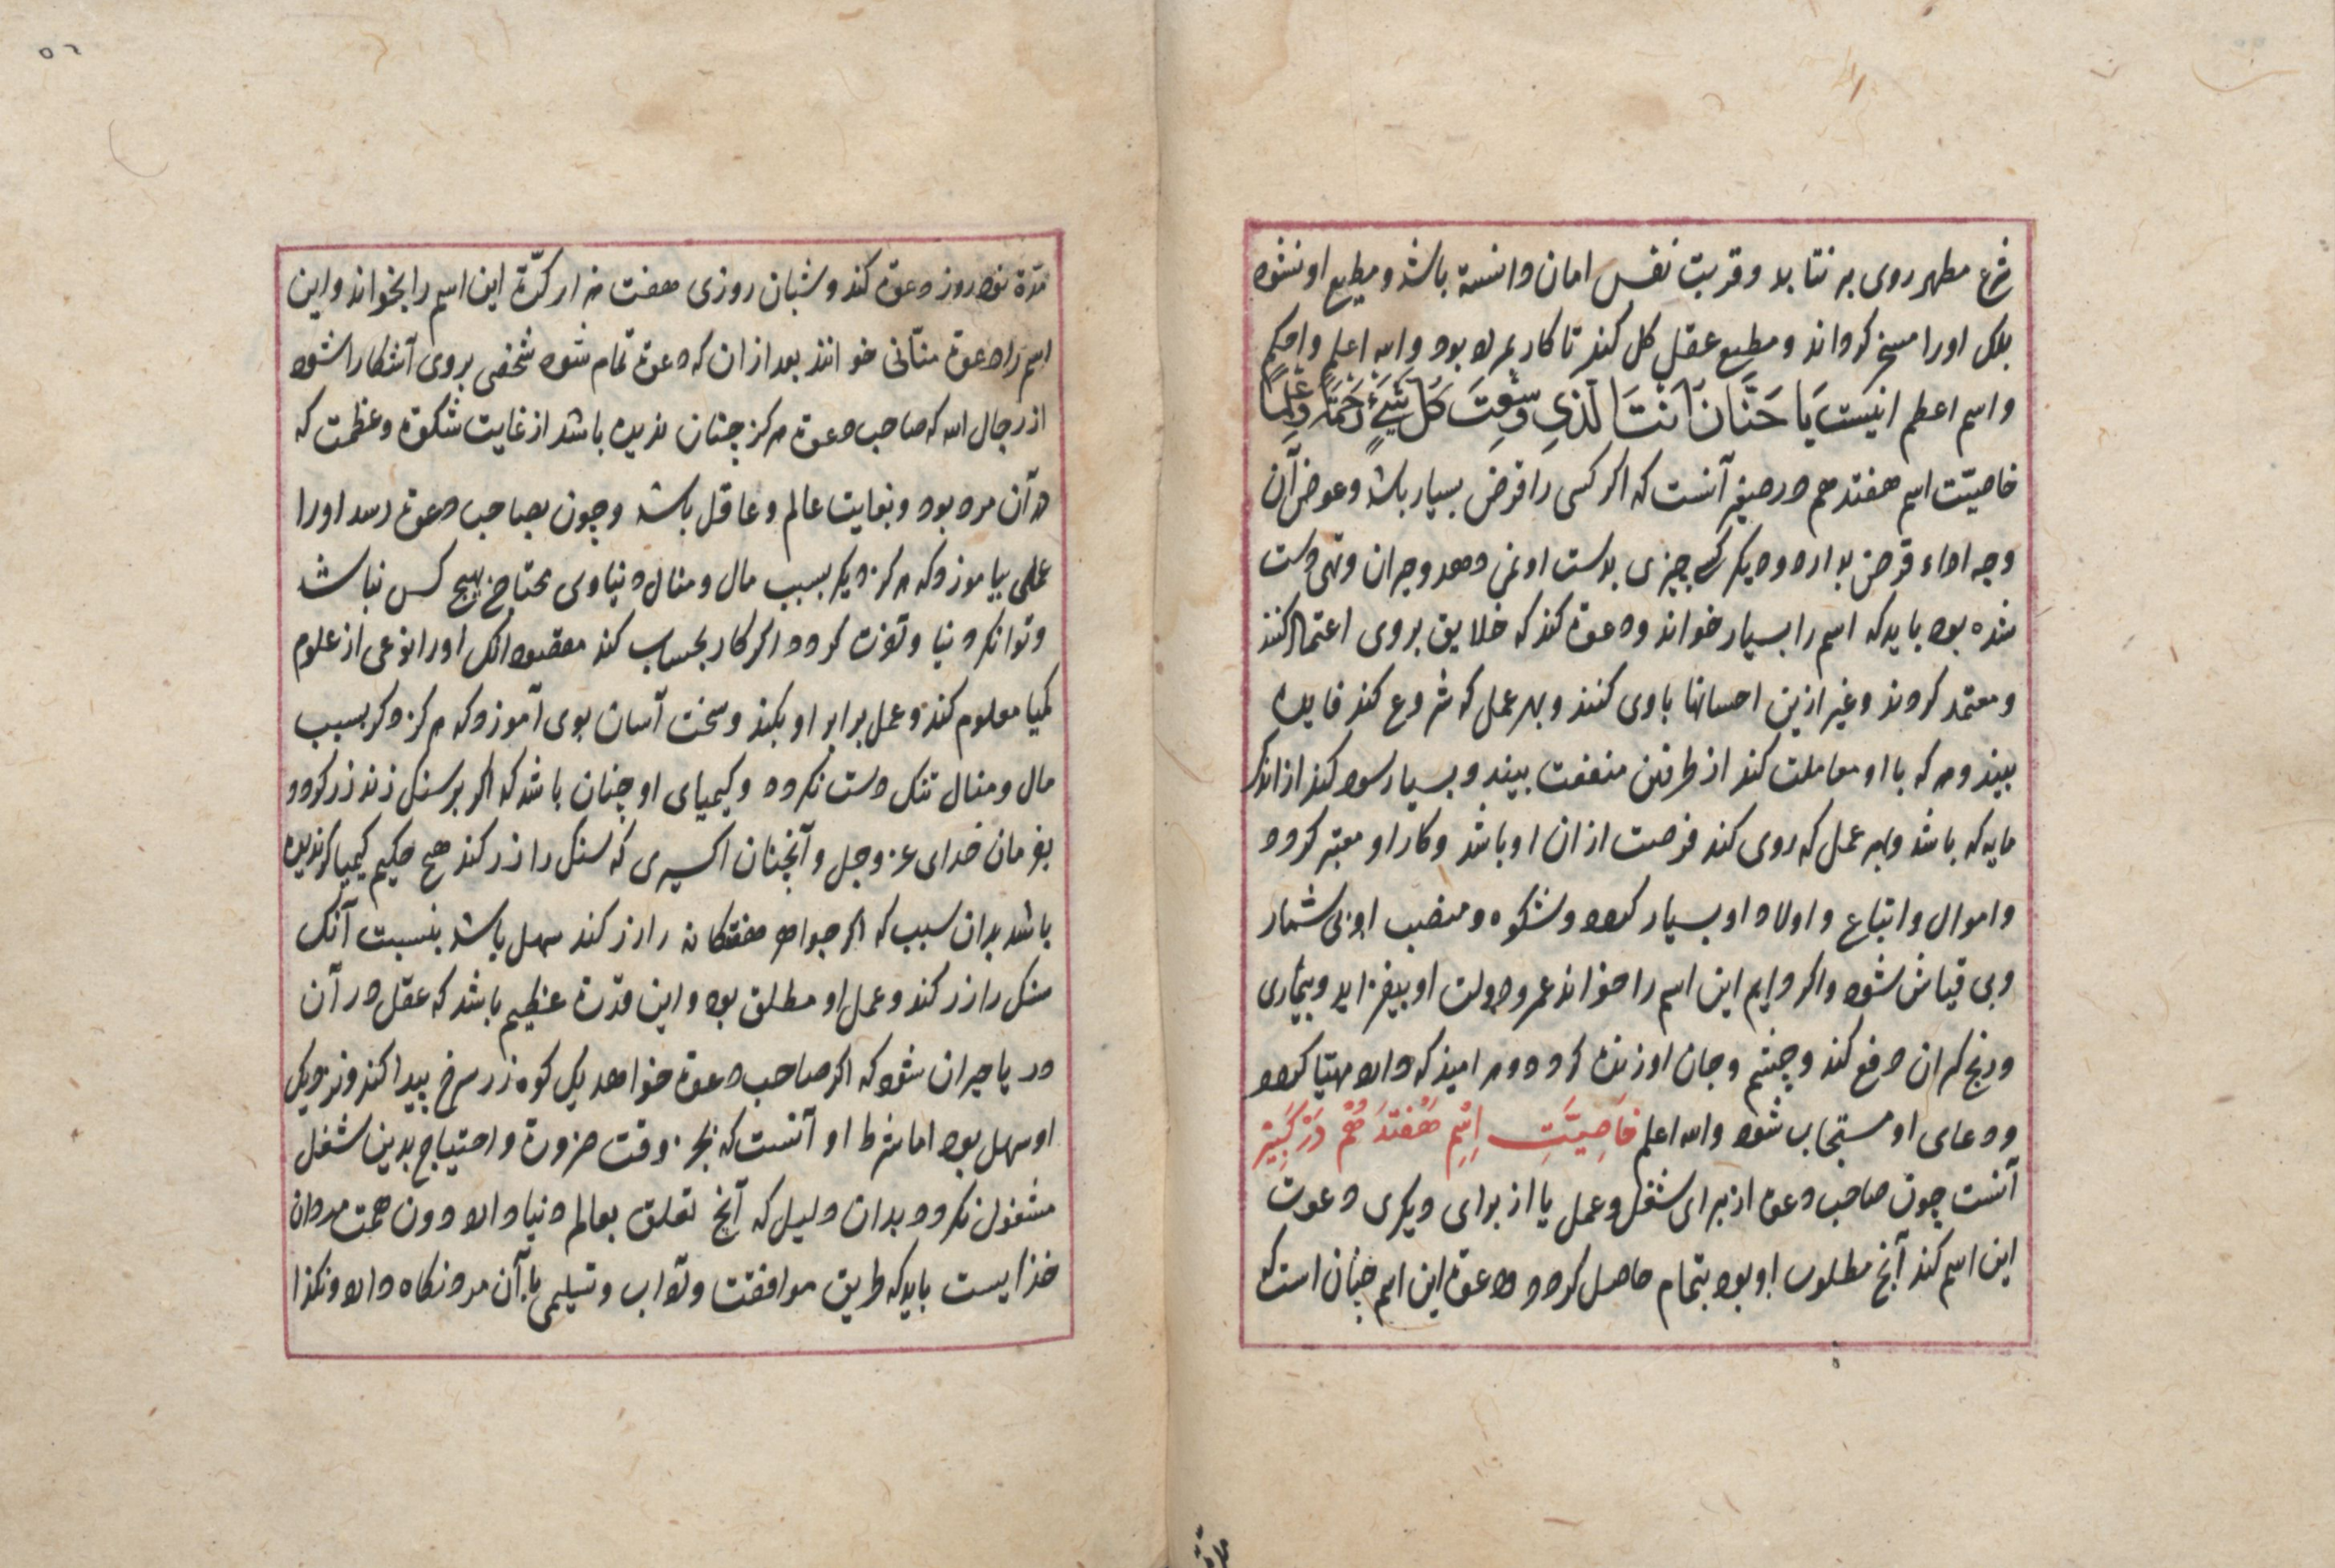 شرع مطهر روی بر نتابد و قربت نفس امان دانسته باشد و مطیع او نشود
بلک اورا مسخر کرداند و مطیع عقل کل کند تا کار بمراد بود والله اعلم واحکم
واسم اعظم اینست یَا حَنَّانَ اَنتَ الَّذِی وَسِعْتَ کُلَّ شَیْءٍ رَحْمَةً وَعِلْمًا
خاصیّت اسم هفتدهم در صغیر آنست که اکر کسی را قرض بسیار باشد و عوض آن
وجه اداء قرض ندارد و دیکر کسی چیزی بدست او نمی دهد و حیران و تهی دست
شده بود باید که اسم را بسیار خواند و دعوة کند که خلایق بروی اعتماد کنند
و معتمد کردند و غیر ازین احسانها باوی کنند و بهر عمل که شروع کند فایده
بیند و هر که با او معاملت کند از طرفین منفعت بیند و بسیار سود کند از اندک
مایه که باشد و بهر عمل که روی کند فرصت از ان او باشد و کار او معتبر کردد
و اموال و اتباع و اولاد او بسیار کردد و شکوه و منصب او بی شمار
و بی قیاش شود و اکر دایم این اسم را خواند عمر و دولت او بیفزاید و بیماری
و رنج کران دفع کند و چشم و جان او زنده کردد و هر امید که دارد مهیّا کردد
و دعای او مستجاب شود والله اعلم خَاصِیَّتِ اِسْمِ هَفْتَدَهُمْ دَرْ کَبِیْر
آنست چون صاحب دعوة از برای شغل و عمل یا از برای دیکری دعوت
این اسم کند آنچ مطلوب او بود بتمام حاصل کردد و دعوة این اسم چنان است که
مدّة نود روز دعوة کند و شبان روزی هفت هزار کرّة این اسم را بخواند و این
اسم را دعوة مثانی خوانند بعد از ان که دعوة تمام شود شخصی بروی آشکارا شود
از رجال الله که صاحب دعوة هرکز چنان ندیده باشد از غایت شکوة و عظمت که
در آن مرد بود و بغایت عالم و عاقل باشد و چون بصاحب دعوة رسد اورا
عملی بیاموزد که هرکز دیکر بسبب مال و منال دنیاوی محتاج هیچ کس نباشد
و توانکر دنیا و کردد اکر کار بحساب کند مقصود انک اورا نوعی از علوم
کمیا معلوم کند و عمل برابر او بکند و سخت آسان بوی آموزد که هرکز دکر بسبب
مال و منال تنک دست نکردد و کیمیای او چنان باشد که اکر بر سنک زند زر کردد
بفرمان خدای عز وجل و آنچنان اکسیری که سنک را زر کند هیچ حکیم کیمیاکر ندیده
باشد بدان سبب که اکر جواهر هفتکانه را زر کند سهل باشد بنسبت آنک
سنک را زر کند و عمل او مطلق بود و این قدرة عظیم باشد که عقل در آن
در پا حیران شود که اکر صاحب دعوة خواهد یک کوه زر سرخ پیدا کند و نزدیک
او سهل بود اما شرط او آنست که بجز وقت ضرورة و احتیاج بدین شغل
مشغول نکردد بدان دلیل که آنچ تعلق بعالم دنیا دارد دون همت مردان
خدایست باید که طریق موافقت و تواب و تسلیمی با آن مرد نکاه دارد و نکذا